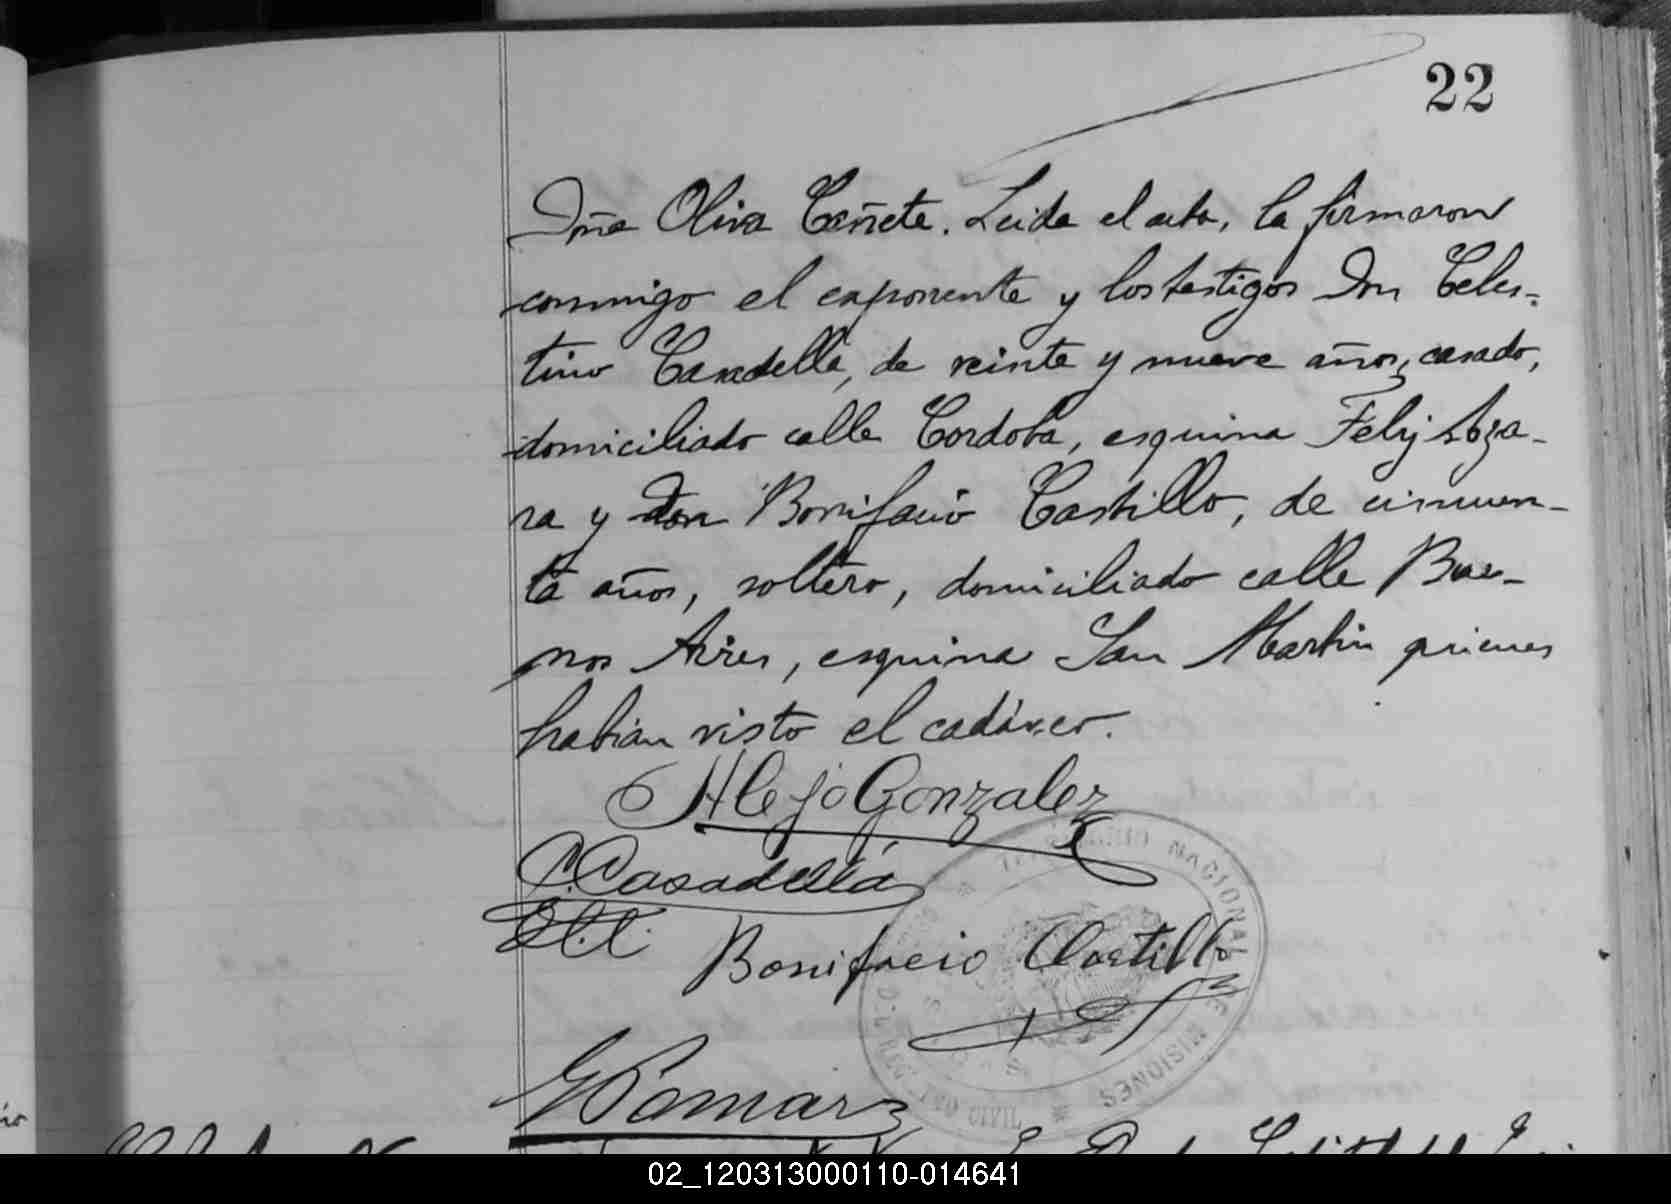 22
Doña Oliva Cañete. Leida el acta, la firmaron
conmigo el exponente y los testigos Don Celes-
tino Casadellá, de veinte y nueve años, casado,
domiciliado calle Cordoba, esquina Felix Aza-
ra y don Bonifacio Castillo, de cincuen-
ta años, soltero, domiciliado calle Bue-
nos Aires, esquina San Martin quienes
habian visto el cadáver.
Alejo Gonzalez
C. Casadellá
Bonifacio Castillo
TERRITORIO NACIONAL DE MISIONES
CIVIL
02_120313000110-014641